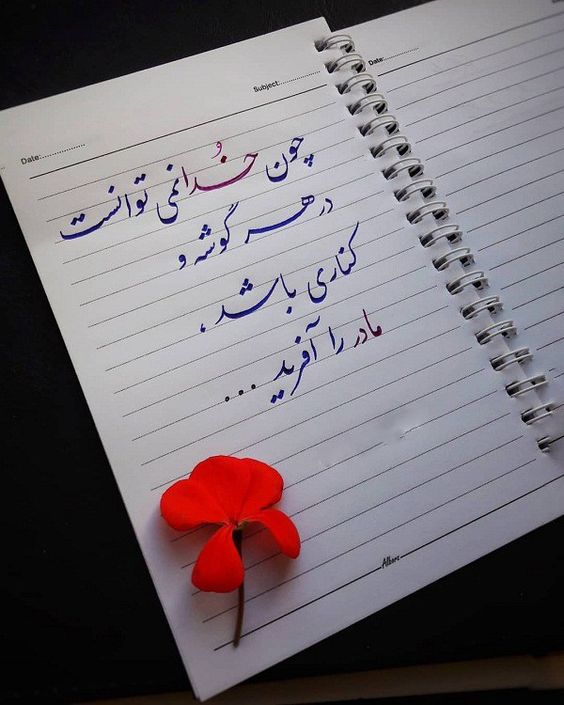 Subject:..............
Date:..............
Date:..............
چون خُدا نمی توانست
در هر گوشه و
کناری باشد،
مادر را آفرید ...